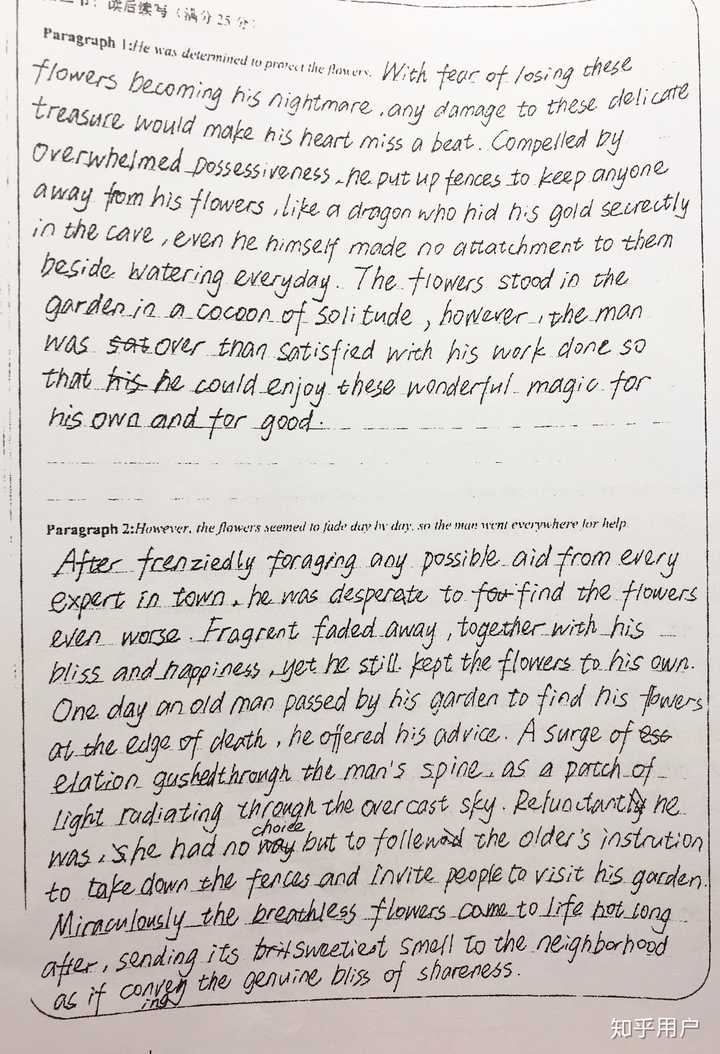 节：读后续写（满分25分）
Paragraph 1:He was determined to protect the flowers. With fear of losing these
flowers becoming his nightmare, any damage to these delicate
treasure would make his heart miss a beat. Compelled by
overwhelmed possessiveness, he put up fences to keep anyone
away from his flowers, like a dragon who hid his gold secrectly
in the cave, even he himself made no attatchment to them
beside watering everyday. The flowers stood in the
garden in a cocoon of solitude, however, the man
was sat over than satisfied with his work done so
that his he could enjoy these wonderful magic for
his own and for good.
Paragraph 2:However, the flowers seemed to fade day by day, so the man went everywhere for help.
After frenziedly foraging any possible aid from every
expert in town, he was desperate to fou find the flowers
even worse. Fragrent faded away, together with his
bliss and happiness, yet he still kept the flowers to his own.
One day an old man passed by his garden to find his flowers
at the edge of death, he offered his advice. A surge of
elation gushed through the man's spine, as a patch of
light radiating through the overcast sky. Relunctantly he
was, he had no way choice but to follow the older's instrution
to take down the fences and invite people to visit his garden.
Miraculously the breathless flowers came to life not long
after, sending its sweetiest smell to the neighborhood
as if conveying the genuine bliss of shareness.
知乎用户